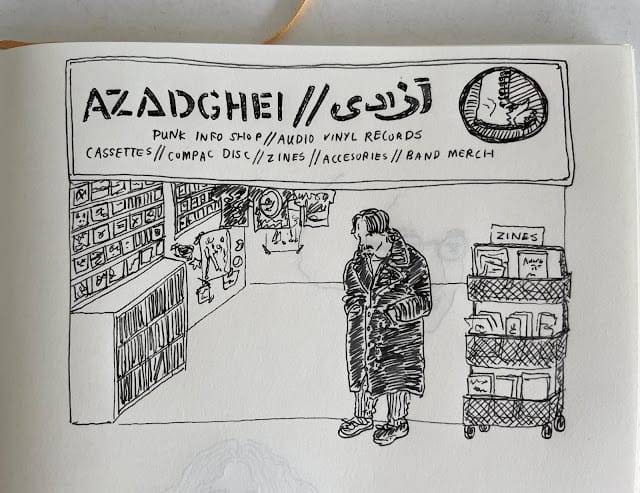 AZADGHEI // آزادی
PUNK INFO SHOP // AUDIO VINYL RECORDS
CASSETTES // COMPAC DISC // ZINES // ACCESORIES // BAND MERCH
ZINES